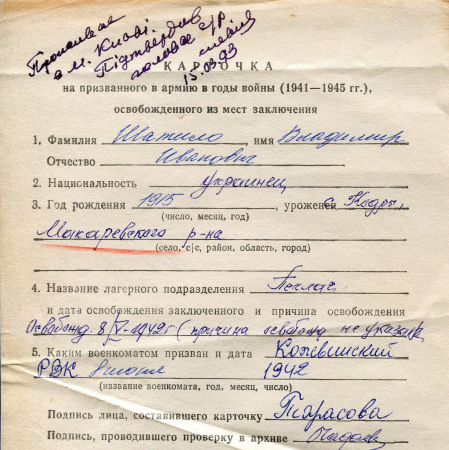 Проживає
в м. Києві.
Підтвердив
голова с/р
15.03.93
КАРТОЧКА
на призванного в армию в годы войны (1941—1945 гг.),
освобожденного из мест заключения
1. Фамилия Шатило, имя Владимир
Отчество Иванович
2. Национальность украинец
3. Год рождения 1915, уроженец с. Кадры,
(число, месяц, год)
Макаревского р-на
(село, с/с, район, область, город)
4. Название лагерного подразделения
и дата освобождения заключенного и причина освобождения
Освобожд. 8/V-1942г (причина освобожд не указана
5. Каким военкоматом призван и дата
РВК 1942
(название военкомата, год, месяц, число)
Подпись лица, составившего карточку Тарасова
Подпись, проводившего проверку в архиве